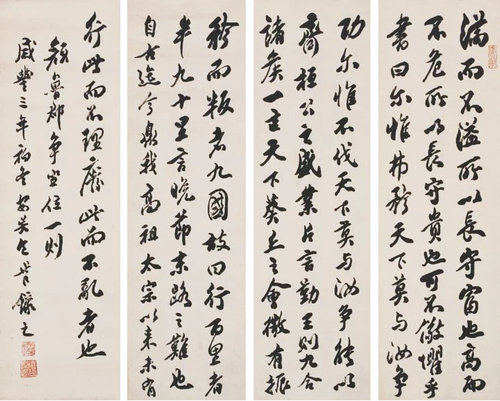 滿而不溢所以長守富也高而
不危所以長守貴也可不儆懼乎
書曰尔惟弗矜天下莫与汝爭
功尔惟不伐天下莫与汝爭能以
齊桓公之盛業片言勤王則九合
諸侯一匡天下葵丘之會微有振
矜而叛者九國故曰行百里者
半九十里言晚節末路之難也
自古迄今暨我高祖太宗以来未有
行此而不理廢此而不亂者也
顏魯郡爭坐位一則
咸豐三年初冬錄之